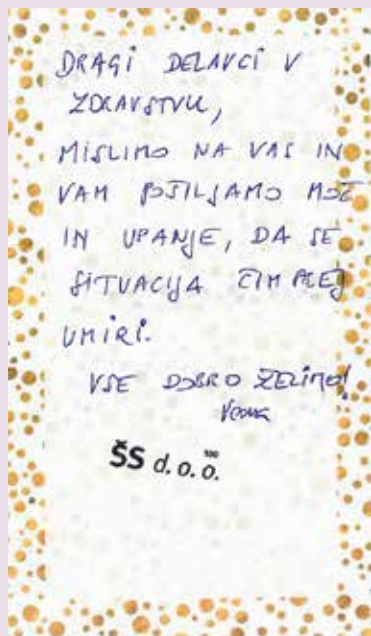 DRAGI DELAVCI V
ZDRAVSTVU,
MISLIMO NA VAS IN
VAM POŠILJAMO MOČ
IN UPANJE, DA SE
SITUACIJA ČIMPREJ
UMIRI.
VSE DOBRO ŽELIMO!
ŠS d.o.o.